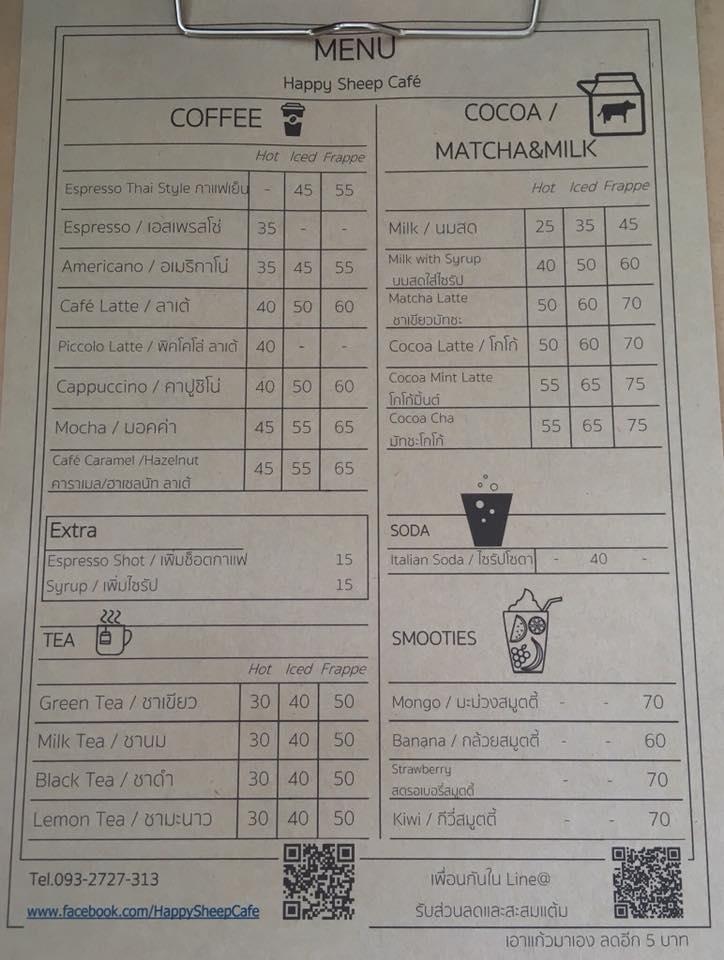 MENU
Happy Sheep Café
COFFEE
Hot Iced Frappe
Espresso Thai Style กาแฟเย็น - 45 55
Espresso / เอสเพรสโซ่ 35 - -
Americano / อเมริกาโน่ 35 45 55
Café Latte / ลาเต้ 40 50 60
Piccolo Latte / พิคโคโล่ ลาเต้ 40 - -
Cappuccino / คาปูชิโน่ 40 50 60
Mocha / มอคค่า 45 55 65
Café Caramel /Hazelnut
คาราเมล/ฮาเซลนัท ลาเต้ 45 55 65
Extra
Espresso Shot / เพิ่มช็อตกาแฟ 15
Syrup / เพิ่มไซรัป 15
TEA
Hot Iced Frappe
Green Tea / ชาเขียว 30 40 50
Milk Tea / ชานม 30 40 50
Black Tea / ชาดำ 30 40 50
Lemon Tea / ชามะนาว 30 40 50
COCOA /
MATCHA&MILK
Hot Iced Frappe
Milk / นมสด 25 35 45
Milk with Syrup
นมสดใส่ไซรัป 40 50 60
Matcha Latte
ชาเขียวมัทชะ 50 60 70
Cocoa Latte / โกโก้ 50 60 70
Cocoa Mint Latte
โกโก้มิ้นต์ 55 65 75
Cocoa Cha
มัทชะโกโก้ 55 65 75
SODA
Italian Soda / ไซรัปโซดา - 40 -
SMOOTIES
Mongo / มะม่วงสมูตตี้ - - 70
Banana / กล้วยสมูตตี้ - - 60
Strawberry
สตรอเบอรี่สมูตตี้ - - 70
Kiwi / กีวี่สมูตตี้ - - 70
Tel.093-2727-313
www.facebook.com/HappySheepCafe
เพื่อนกันใน Line@
รับส่วนลดและสะสมแต้ม
เอาแก้วมาเอง ลดอีก 5 บาท